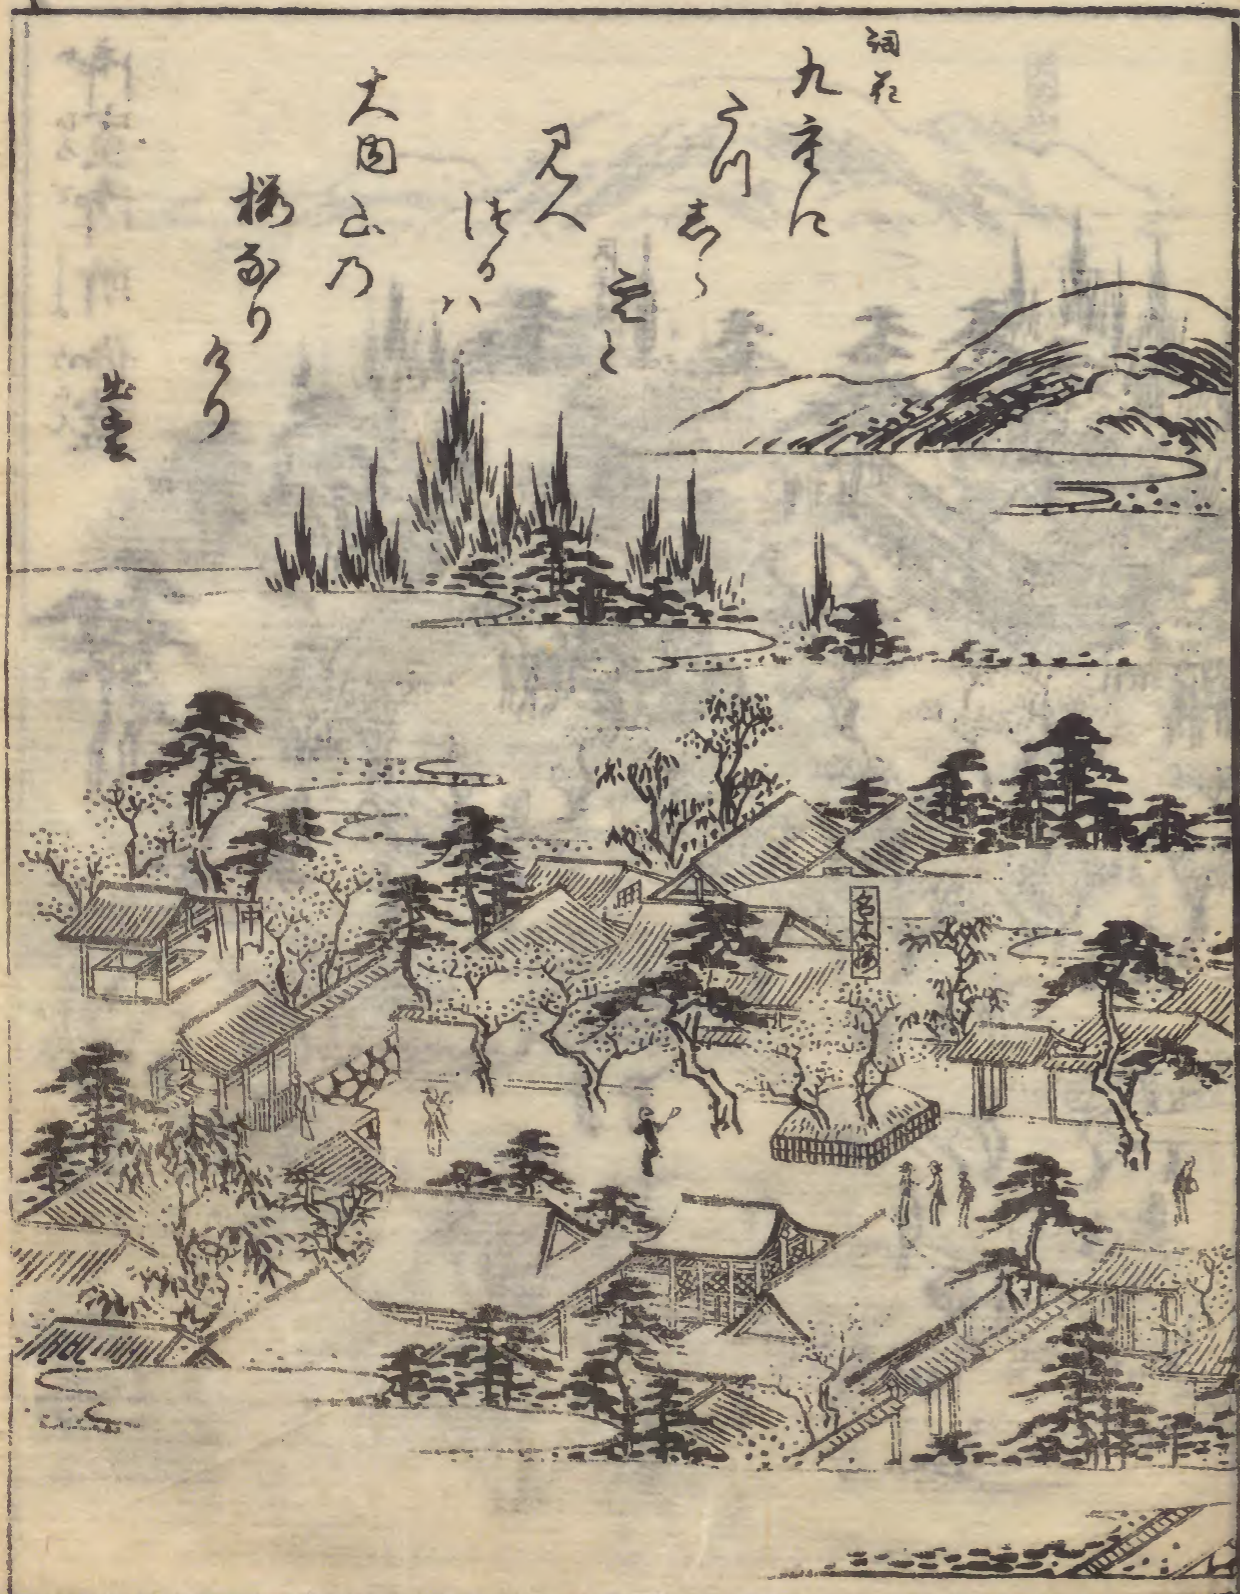 詞花
九重に
たつ
志ら
雲と
見え
つるハ
大内山乃
桜なり
けり
出雲
名木桜